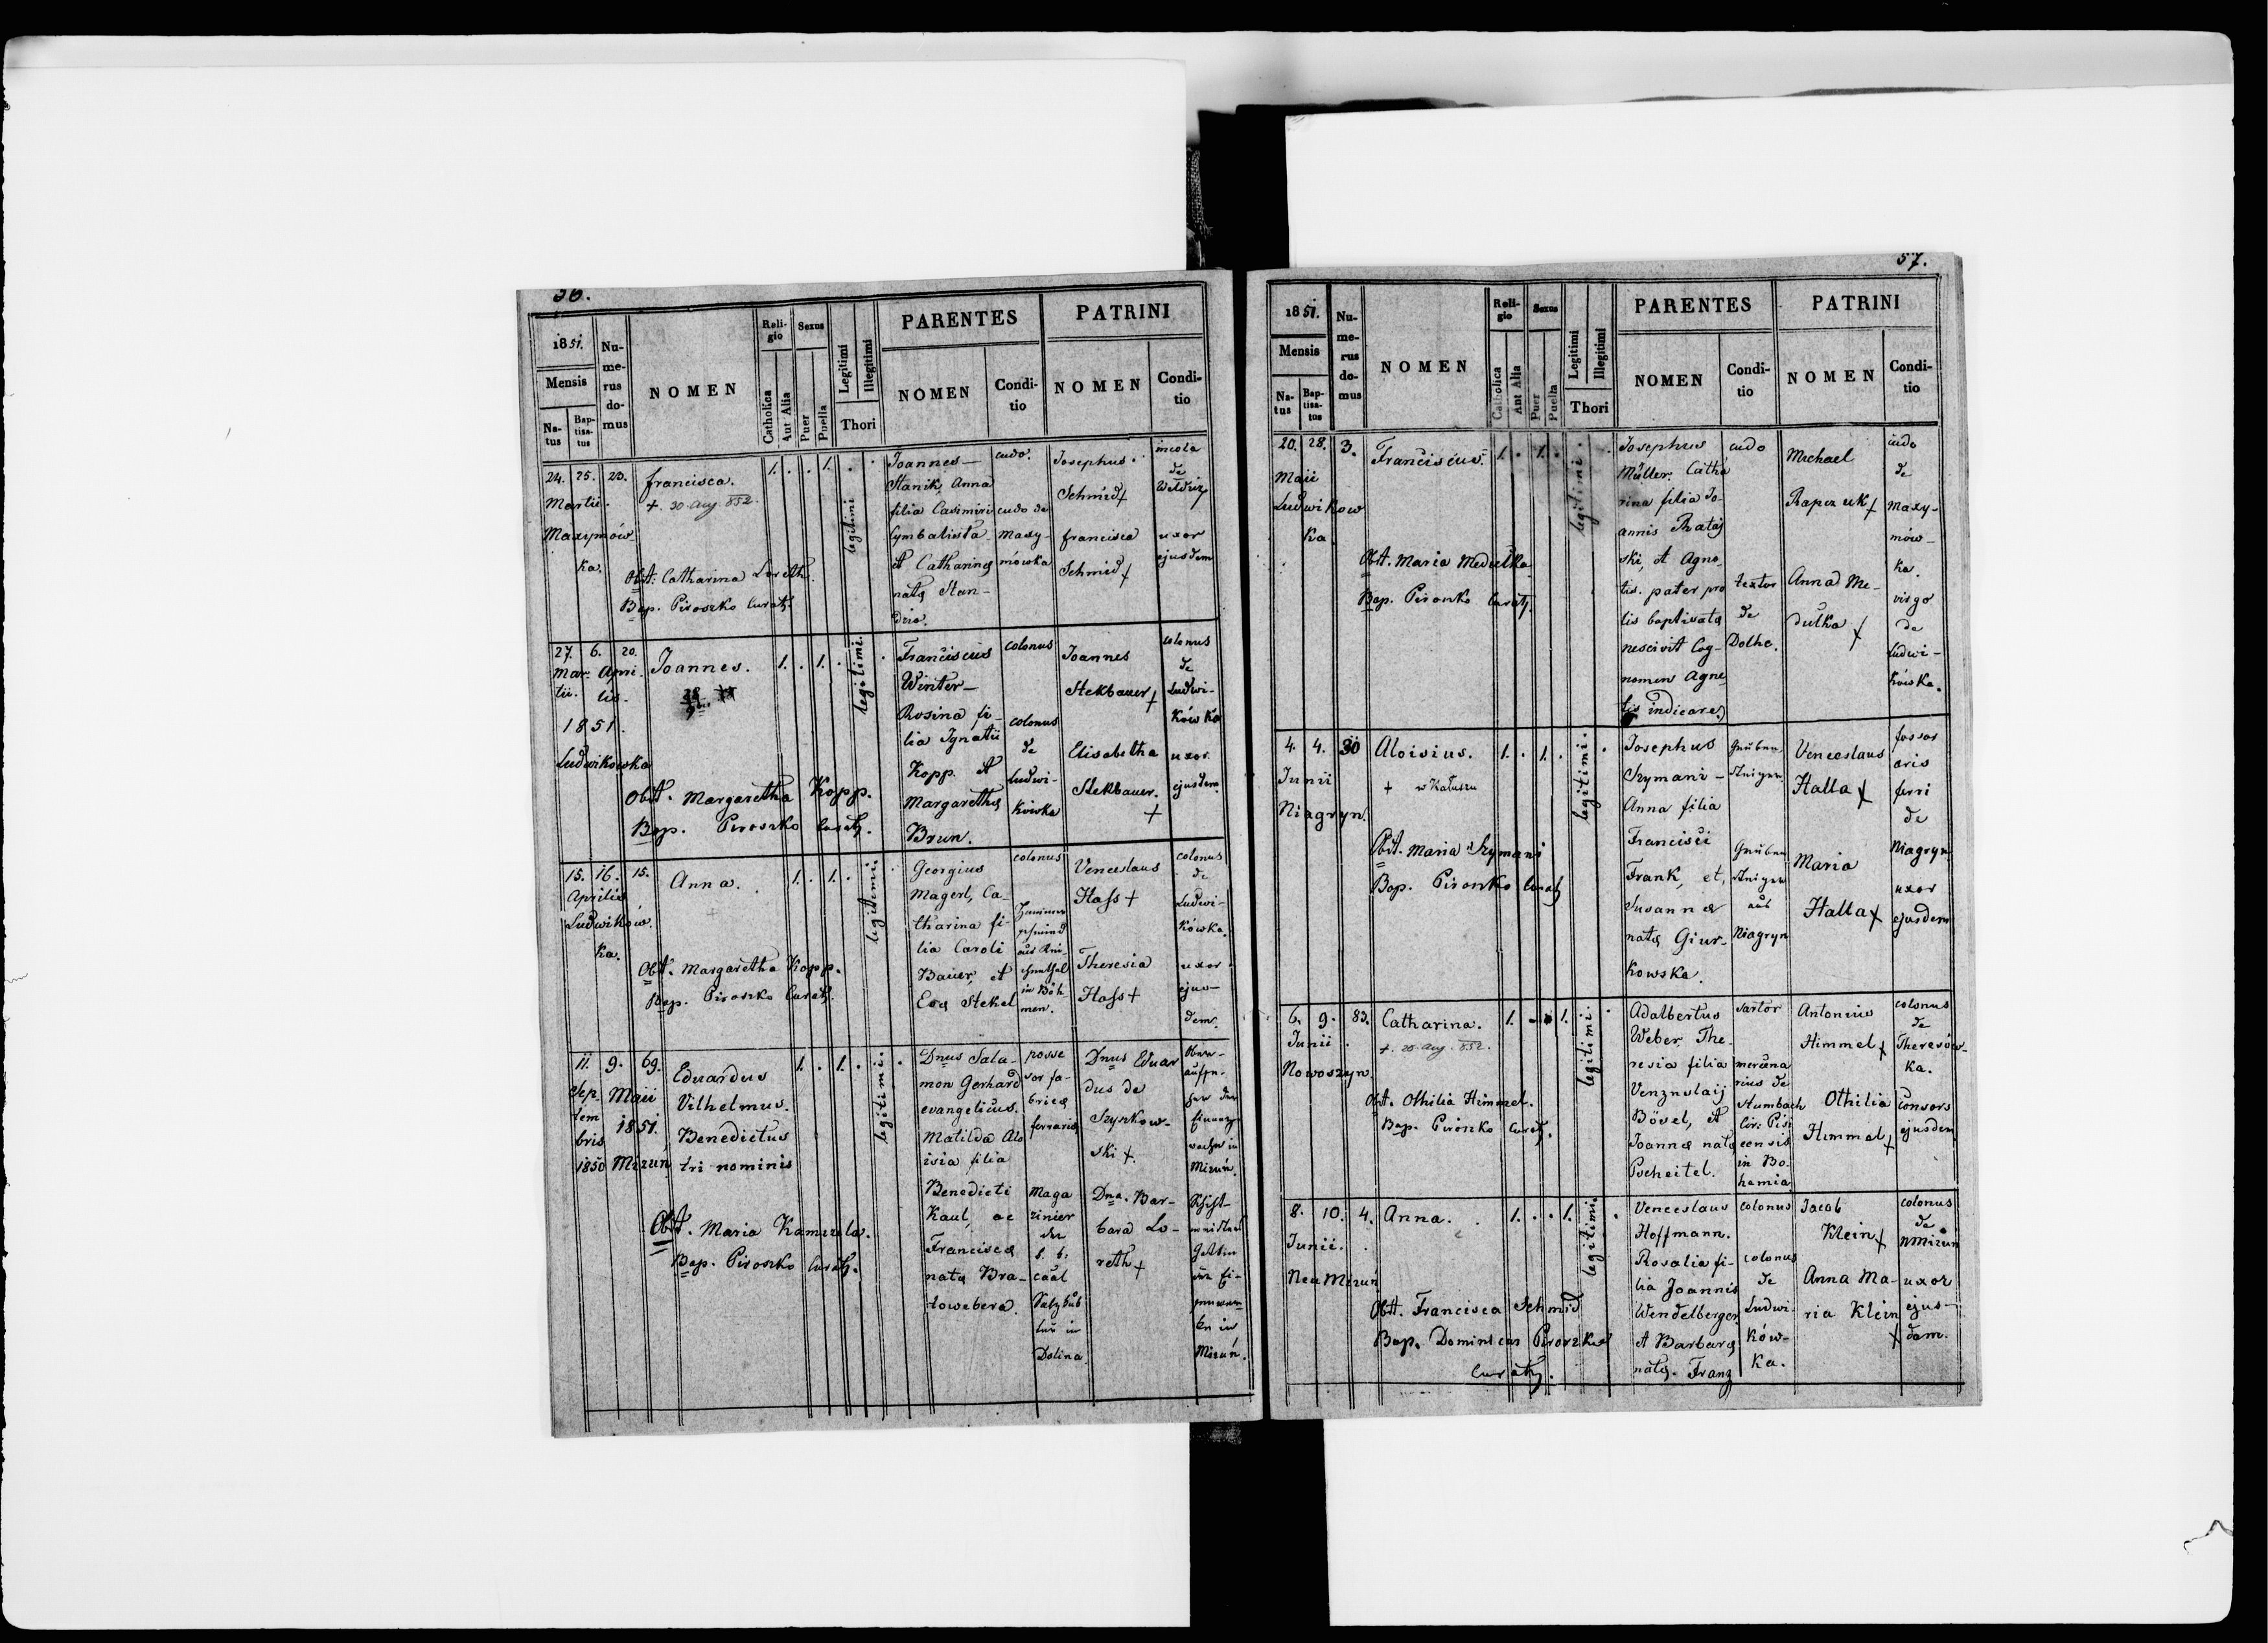 36.
1851.
Mensis
Na-
tus
Bap-
tisa-
tus
Nu-
me-
rus
do-
mus
NOMEN
Reli-
gio
Catholica
Aut Alia
Sexus
Puer
Puella
Legitimi
Illegitimi
Thori
PARENTES
NOMEN
Condi-
tio
PATRINI
NOMEN
Condi-
tio
24. 25. 23.
Martii.
Maxymów
ka.
Francisca.
+. 30. Aug. 852.
Obst. Catharina Loreth.
Bap. Piroszko Curatj.
1. . . 1. . .
legitimi
Joannes
Stanik Anna
filia Casimiri
Cymbalista
et Catharina
nata Stan-
dio.
cudo.
cudo de
Maxy-
mówka
Josephus
Schmid +
Francisca
Schmid +
incola
de
Weldziz
uxor
ejusdem
27. 6. 20.
Mar- Apri-
tii. lis.
1851.
Ludwikowka
Joannes.
Obst. Margaretha Kopp.
Bap. Piroszko Curatj.
1. . 1. . .
legitimi.
Franciscus
Winter
Rosina fi-
lia Ignatii
Kopp et
Margaretha
Brun.
colonus
colonus
de
Ludwi-
kówka
Joannes
Stekbauer +
Elisabetha
Stekbauer.
+
colonus
de
Ludwi-
kówka
uxor
ejusdem
15. 16. 15.
Aprilis
Ludwików.
ka.
Anna.
Obst. Margaretha Kopp.
Bap. Piroszko Curatj.
1. . 1. . .
legitimi.
Georgius
Magerl, Ca-
tharina fi-
lia Caroli
Bauer, et
Eva Stekel
colonus
in Böh-
men.
Venceslaus
Hass +
Theresia
Hass +
colonus
de
Ludwi-
kówka.
uxor
ejus-
dem.
11. 9. 69.
Sep Maii
tem 1851.
bris
1850 Mizuń
Eduardus
Vilhelmus.
Benedictus
tri nominis
Obst. Maria Kamzela.
Bap. Piroszko Curatj.
1. . 1. . .
legitimi.
Dnus Sala-
mon Gerhard
evangelicus.
Matilda Alo
isia filia
Benedicti
Kaul, ac
Francisca
nata Bra-
towebera.
posse
sor fa-
brica
ferraria
Maga
zinier
der
in
Dolina
Dnus Eduar
dus de
Szyszkow-
ski +.
Dna. Bar-
bara Lo-
reth +
Ober-
in
Mizuń.
in
Mizuń.
57.
1851.
Mensis
Na-
tus
Bap-
tisa-
tus
Nu-
me-
rus
do-
mus
NOMEN
Reli-
gio
Catholica
Aut Alia
Sexus
Puer
Puella
Legitimi
Illegitimi
Thori
PARENTES
NOMEN
Condi-
tio
PATRINI
NOMEN
Condi-
tio
20. 28. 3.
Maii
Ludwikow
ka
Franciscus.
Obst. Maria Medulka
Bap. Piroszko Curatj.
1. . 1. . .
legitimi.
Josephus
Müller. Catha
rina filia Jo-
annis Rataj
ski, et Agne-
tis. pater pro
lis baptisata
nescivit Cog-
nomen Agne
tis indicare.)
cudo
textor
de
Dolhe.
Michael
Rapczuk +
Anna Me-
dulka +
cudo
de
Maxy-
mów-
ka.
virgo
de
Ludwi-
kówka.
4. 4. 30
Junii
Niagryn.
Aloisius.
+ w Kałuszu
Obst. Maria Szymani
Bap. Piroszko Curatj
1. . 1. . .
legitimi.
Josephus
Szymani
Anna filia
Francisci
Frank, et,
Susanna
nata Giur-
kowska.
Gruben
steiger
Gruben
steiger
aus
Niagryn
Venceslaus
Halla +
Maria
Halla +
fossor
oris
ferri
de
Niagryn
uxor
ejusdem
6. 9. 83.
Junii
Nowoszyn
Catharina.
+. 20. Aug. 852.
Obst. Othilia Himmel.
Bap. Piroszko Curatj.
1. . . 1. .
legitimi.
Adalbertus
Weber The-
resia filia
Venznslaij
Bösel, et
Joanna nata
Pscheitel.
sartor
mercena
rius de
Stumbach
Cir: Pis
censis
in Bo
hemia
Antonius
Himmel +
Othilia
Himmel +
colonus
de
Theresów-
ka.
Consors
ejusdem
8. 10. 4.
Junii.
Neu Mizuń
Anna.
Obst. Francisca Schmid
Bap. Dominicus Piroszko
Curatj.
1. . . 1. .
legitimi.
Venceslaus
Hoffmann.
Rosalia fi-
lia Joannis
Wendelberger
et Barbara
nata. Franz
colonus
colonus
de
Ludwi-
ków-
ka.
Jacob
Klein +
Anna Ma-
ria Klein
+
colonus
de
NMizuń
uxor
ejus-
dem.